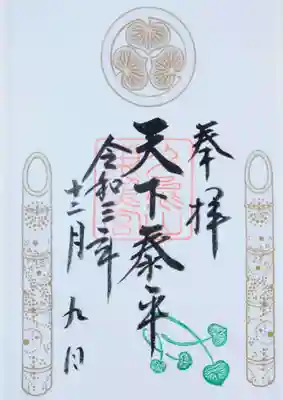 奉拝
天下泰平
令和三年
十二月九日